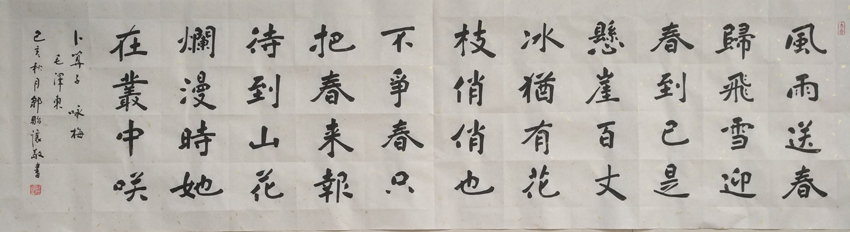 風雨送春
歸飛雪迎
春到已是
懸崖百丈
冰猶有花
枝俏俏也
不爭春只
把春来報
待到山花
爛漫時她
在叢中咲
卜算子 咏梅
毛澤東
己亥秋月
敬書